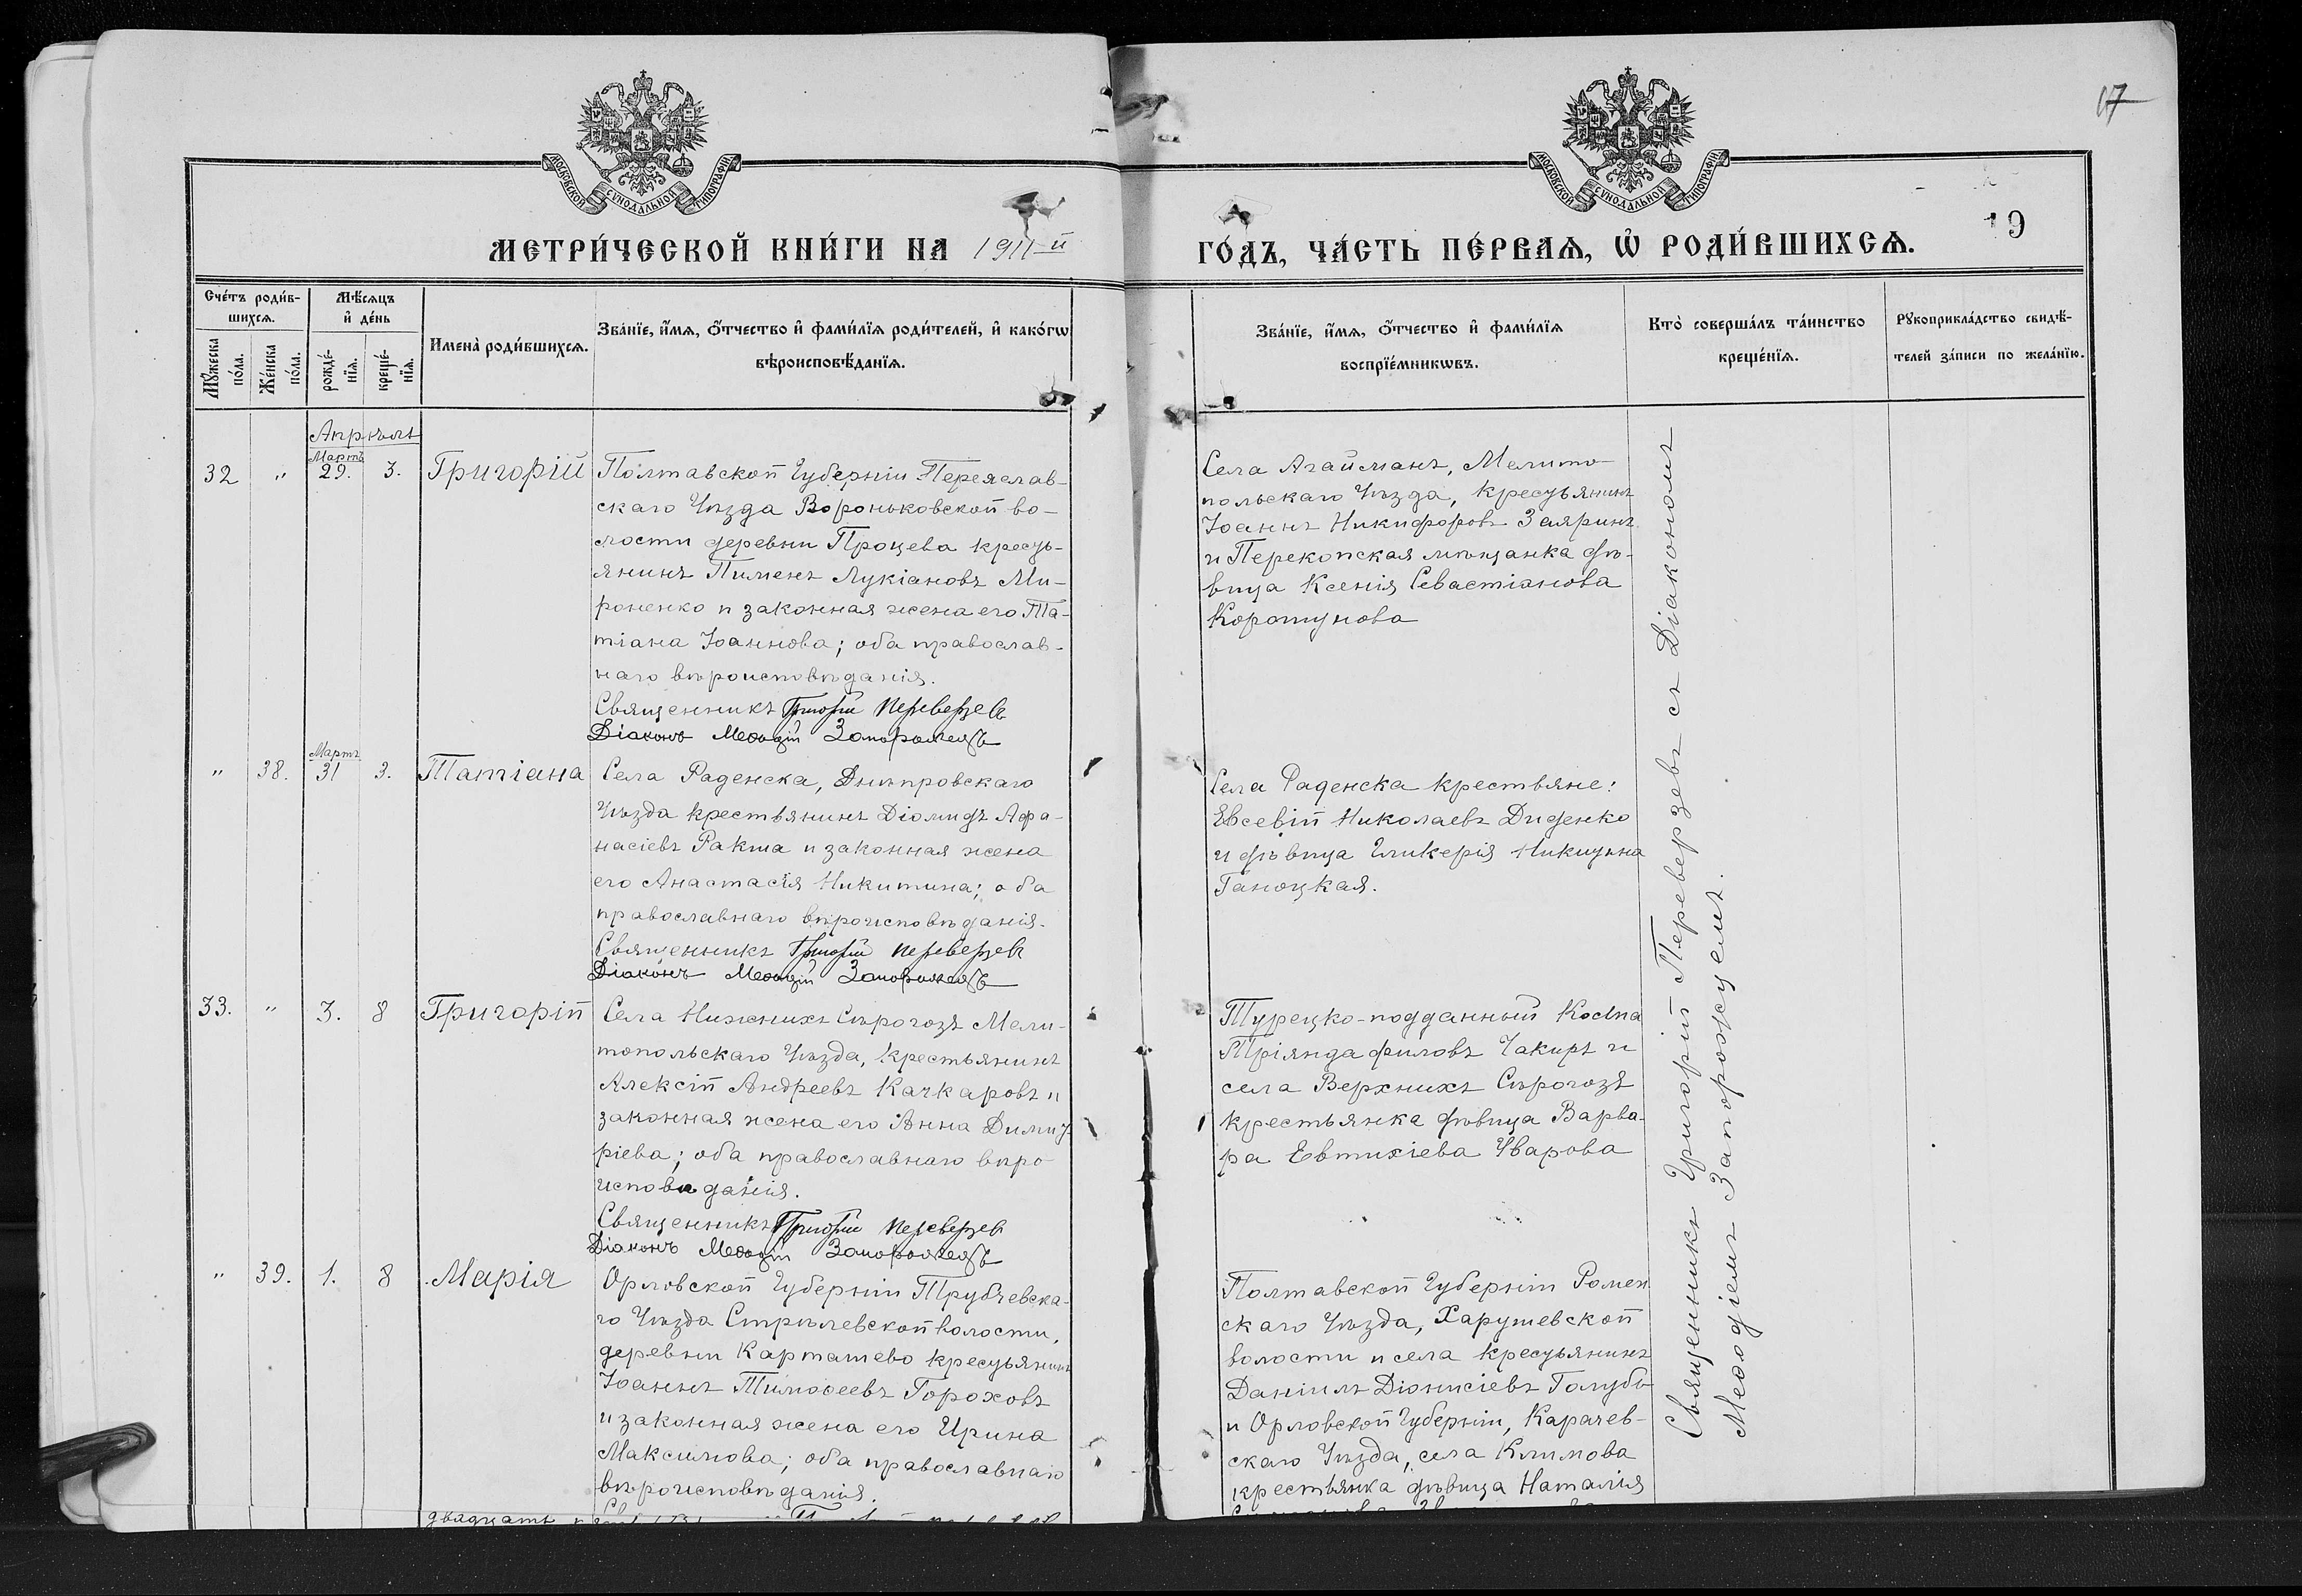 17
19
МОСКОВСКОЙ СѴНОДАЛЬНОЙ ТИПОГРАФІИ
МОСКОВСКОЙ СѴНОДАЛЬНОЙ ТИПОГРАФІИ
МЕТРИ́ЧЕСКОЙ КНИ́ГИ НА 1911-й
ГО́ДЪ, ЧА́СТЬ ПЕ́РВАѦ, Ѡ҆ РОДИ́ВШИХСѦ.
Сче́тъ роди́в-
шихсѧ.
Мꙋ́жеска
по́ла.
Же́нска
по́ла.
Мѣ́сѧцъ
и҆ де́нь
рожде́-
нїѧ.
креще́-
нїѧ.
Имена̀ роди́вшихсѧ.
Зва́нїе, и҆́мѧ, ѻ҆́тчество и҆ фами́лїѧ роди́телей, и҆ како́гѡ
вѣроисповѣ́данїѧ.
Зва́нїе, и҆́мѧ, ѻ҆́тчество и҆ фами́лїѧ
воспрїе́мникѡвъ.
Кто̀ соверша́лъ та́инство
креще́нїѧ.
Рꙋкоприкла́дство свидѣ́-
телей за́писи по жела́нїю.
Апрѣль
Мартъ
32 " 29. 3. Григорій
Полтавской Губерніи Переяслав-
скаго Уѣзда Вороньковской во-
лости деревни Процева кресть-
янинъ Пименъ Лукіановъ Ми-
роненко и законная жена его Та-
тіана Іоаннова; оба православ-
наго вѣроисповѣданія.
Священникъ Григорій Переверзевъ
Діаконъ Меѳодій Запорожецъ
Села Агайманъ, Мелито-
польскаго Уѣзда, крестьянинъ
Іоаннъ Никифоровъ Заяринъ
и Перекопская мѣщанка дѣ-
вица Ксенія Севастіанова
Коротунова
Мартъ
" 38. 31 3. Татіана
Села Раденска, Днѣпровскаго
Уѣзда крестьянинъ Діомидъ Афа-
насіевъ Ракша и законная жена
его Анастасія Никитина; оба
православнаго вѣроисповѣданія.
Священникъ Григорій Переверзевъ
Діаконъ Меѳодій Запорожецъ
Села Раденска крестьяне:
Евсевій Николаевъ Диденко
и дѣвица Гликерія Никитина
Ганоцкая.
33. " 3. 8 Григорій
Села Нижнихъ Сѣрогозъ Мели-
топольскаго Уѣзда, крестьянинъ
Алексій Андреевъ Качкаровъ и
законная жена его Анна Димит-
ріева; оба православнаго вѣро-
исповѣданія.
Священникъ Григорій Переверзевъ
Діаконъ Меѳодій Запорожецъ
Турецко-подданный Коста
Тріяндафиловъ Чакиръ и
села Верхнихъ Сѣрогозъ
крестьянка дѣвица Варва-
ра Евтихіева Уварова
" 39. 1. 8 Марія
Орловской Губерніи Трубчевска-
го Уѣзда Стрѣлевской волости,
деревни Карташево крестьянинъ
Іоаннъ Тимоѳеевъ Гороховъ
и законная жена его Ирина
Максимова; оба православнаго
вѣроисповѣданія.
Полтавской Губерніи Ромен-
скаго Уѣзда, Харушевской
волости и села крестьянинъ
Даніилъ Діонисіевъ Голубь
и Орловской Губерніи, Карачев-
скаго Уѣзда, села Климова
крестьянка дѣвица Наталія
Священникъ Григорій Переверзевъ съ Діакономъ
Меѳодіемъ Запорожцемъ.
двадцать